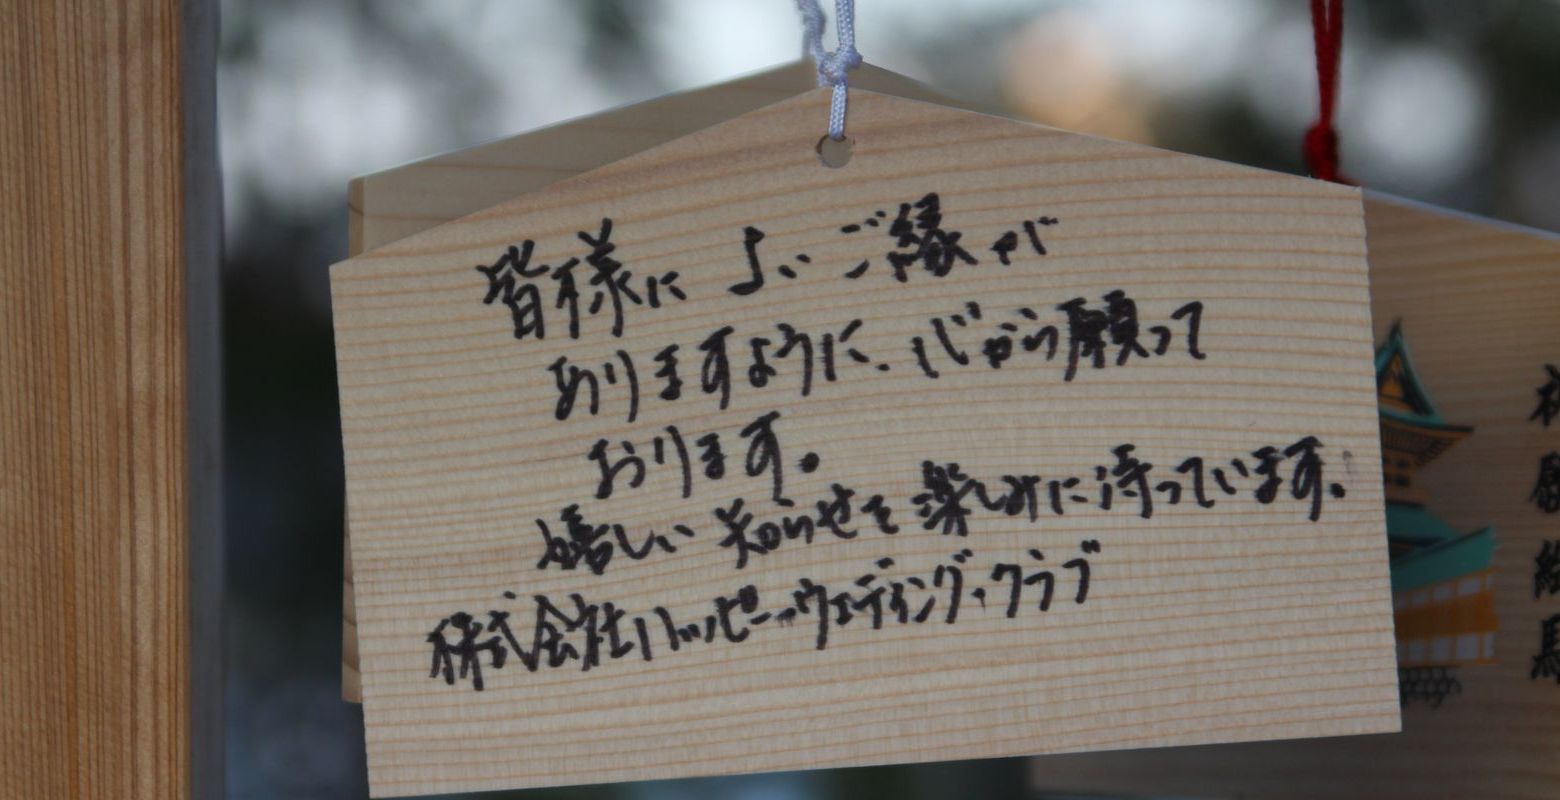 皆様に よいご縁が
ありますように、心から願って
おります。
嬉しい知らせを楽しみに待っています。
株式会社ハッピーウェディング・クラブ
祈願絵馬